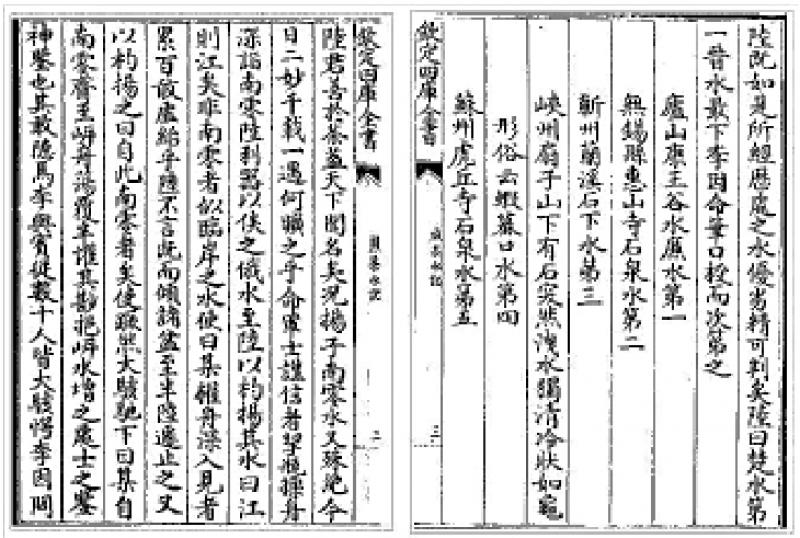 陸既如是所經歷處之水優劣精可判矣陸曰楚水第
一晉水最下李因命筆口授而次第之
廬山康王谷水簾水第一
無錫縣惠山寺石泉水第二
蘄州蘭溪石下水第三
峽州扇子山下有石突然洩水獨清冷狀如龜
形俗云蝦蟇口水第四
蘇州虎丘寺石泉水第五
欽定四庫全書
煎茶水記
三
欽定四庫全書
煎茶水記
二
陸君善於茶蓋天下聞名矣況揚子南零水又殊絶今
日二妙千載一遇何曠之乎命軍士謹信者挈瓶操舟
深詣南零陸利器以俟之俄水至陸以杓揚其水曰江
則江矣非南零者似臨岸之水使曰某櫂舟深入見者
累百敢虛紿乎陸不言既而傾諸盆至半陸遽止之又
以杓揚之曰自此南零者矣使蹶然大駭馳下曰某自
南零齎至岸舟蕩覆半懼其尠挹岸水增之處士之鑒
神鑒也其敢隱焉李與賓從數十人皆大駭愕李因問